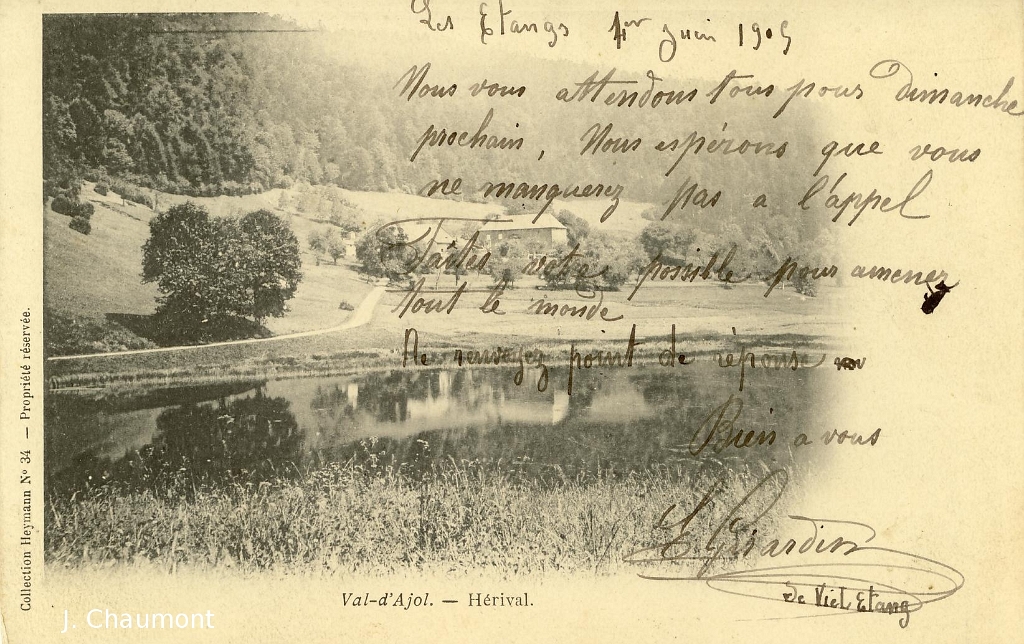 Les Etangs 1er Juin 1905
Nous vous attendons tous pour dimanche
prochain, Nous espérons que vous
ne manquerez pas a l'appel
Faites votre possible pour amener
tout le monde
Ne renvoyez point de réponse
Bien a vous
Girardin
de Viel Etang
Collection Heymann No 34 — Propriété réservée.
Val-d'Ajol. — Hérival.
J. Chaumont